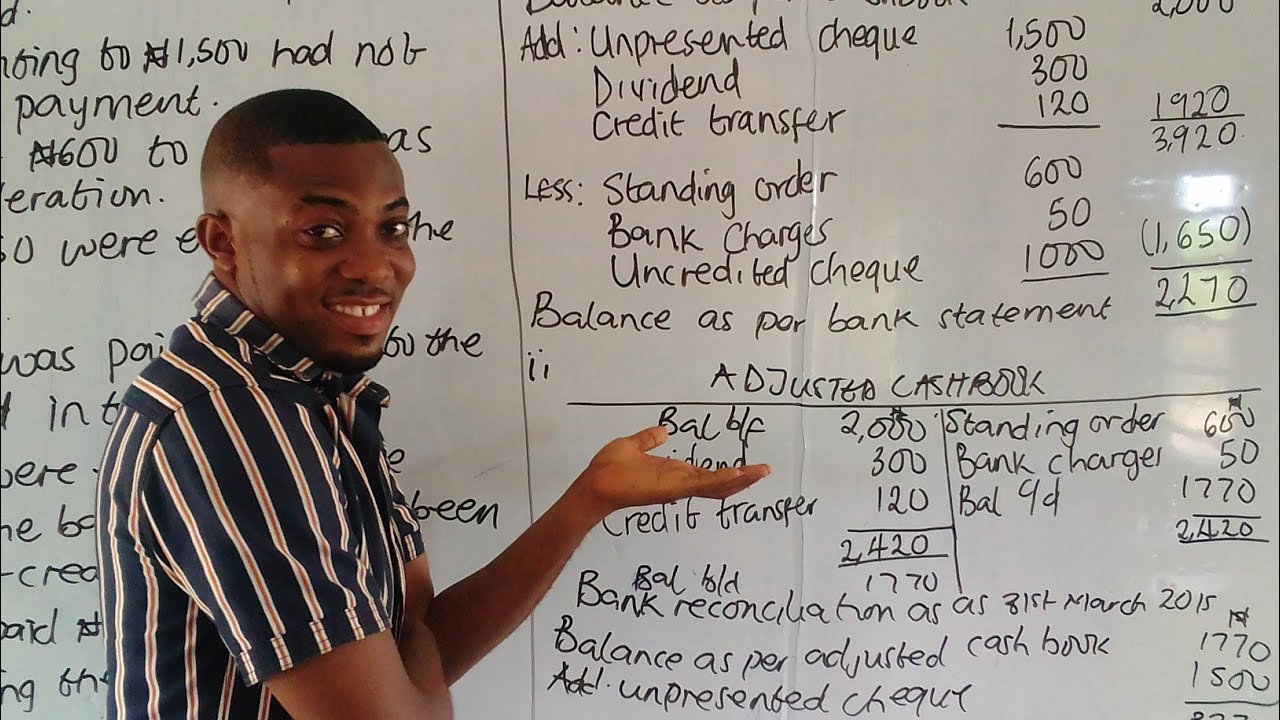 d.
nting to ₦1,500 had not
payment.
₦600 to as
eration.
50 were the
was pai to the
in t
were
he ba been
-cred
paid ₦
ng the
2,000
Add: Unpresented cheque 1,500
Dividend 300
Credit transfer 120 1920
3,920
Less: Standing order 600
Bank Charges 50
Uncredited cheque 1000 (1,650)
Balance as per bank statement 2,270
ii
ADJUSTED CASHBOOK
Bal b/f 2,000 Standing order 600
idend 300 Bank charges 50
Credit transfer 120 Bal c/d 1770
2,420 2,420
Bal b/d 1770
Bank reconciliation as as 31st March 2015
₦
Balance as per adjusted cash book 1770
Add: unpresented cheque 1500